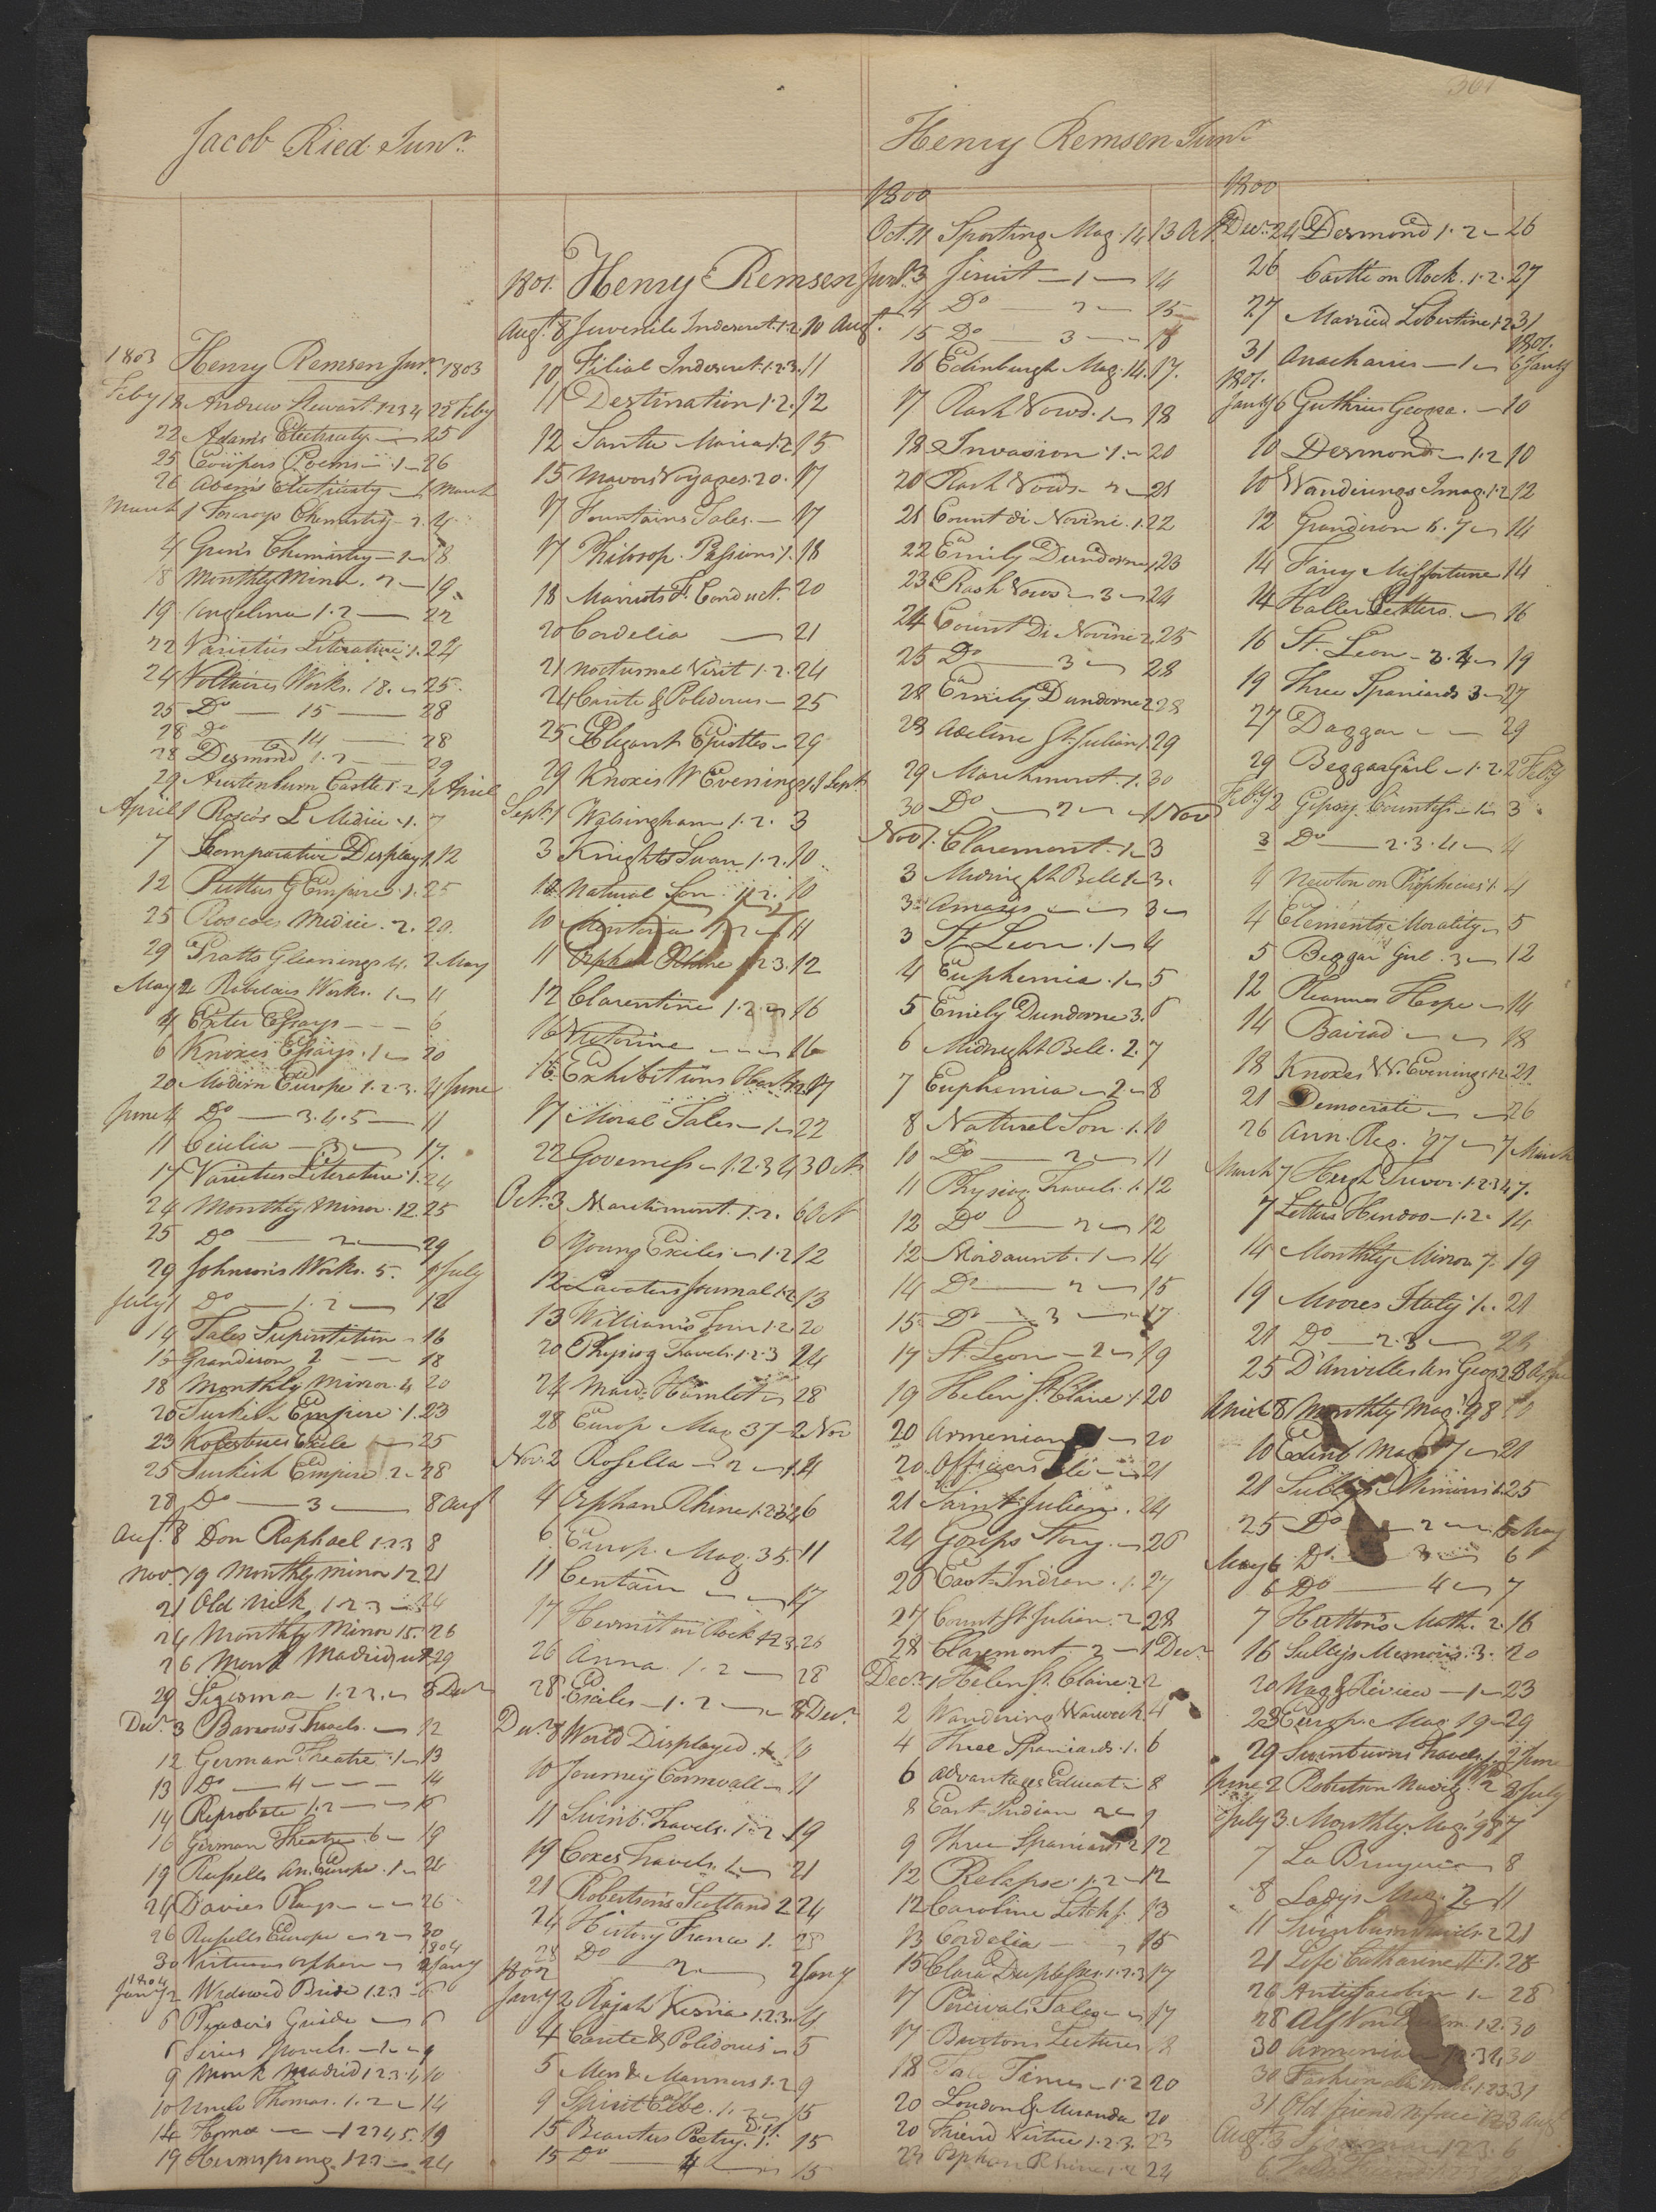 301
Jacob Ried Junr.
1803 Henry Remsen Junr. 1803
Feby 12 Andrew Stewart 1 2 3 4 22 Feby
22 Adams Electricity 25
25 Cowpers Poems 1 26
26 Adams Electricity 1 March
March 1 Fourcroys Chemistry 2. 4
4 Grens Chemistry 1 8
8 Monthly Mirror. 2 19
19 Angelina 1. 2 22
22 Varieties Literature 1. 24
24 Voltaires Works. 18. 25
25 Do 15 28
28 Do 14 28
28 Desmond 1. 2 29
29 Austenburn Castle 1. 2 1 April
April 1 Roscos L Medici 1. 7
7 Comparative Display 1. 12
12 G Empires 1. 25
25 Roscoes Medici. 2. 29.
29 Pratts Gleanings 4. 2 May
May 2 Rabelais Works. 1 4
4 Exeter Essays 6
6 Knoxes Essays. 1 20
20 Modern Europe 1. 2. 3. 4 June
June 4 Do 3. 4. 5 11
11 Cecilia 3 17.
17 Varieties Literature 1. 24
24 Monthly Mirror. 12. 25
25 Do 2 29
29 Johnsons Works. 5. 1 July
July 1 Do 1. 2 12
14 Tales Superstition 16
15 Grandison 2 18
18 Monthly Mirror. 4 20
20 Turkish Empire 1. 23
23 Kotzebues Exile 25
25 Turkish Empire 2 28
28 Do 3 8 Augt
Augt. 8 Don Raphael 1 2 3 8
Nov. 19 Monthly Mirror 12 21
21 Old Nick 1 2 3 24
24 Monthly Mirror 15. 26
26 Monk Madrid 29
29 Sigisma 1. 2 3. 3 Decr
Decr. 3 Barrows Travels. 12
12 German Theatre 1 13
13 Do 4 14
14 Reprobate 1. 2 16
16 German Theatre. 6 19
19 Russells An. Europe. 1 24
24 Davies Plays 26
26 Russells Europe 2 30
1804
30 Virtuous Orphan 2 Jany
1804
Jany 2 Widowed Bride 1 2 3 6
6 Guide 6
6 Novels. 9
9 Monk Madrid 1 2 3. 4 10
10 Uncle Thomas. 1. 2 14
14 Home 1 2 3 4 5. 19
19 Hermsprong 1 2 3 24
1801. Henry Remsen Junr.
Augt. 8 Juvenile Indescret. 1. 2. 10 Augt.
10 Filial Indescret. 1. 2. 3. 11
11 Destination 1. 2. 12
12 Santa Maria 1. 2 15
15 Mavors Voyages. 20. 17
17 Fountains Tales. 17
17 Philosop. Passions 1. 18
18 Marriotts F. Conduct. 20
20 Cordelia 21
21 Nocturnal Visit 1. 2. 24
24 Carite & Polidorus 25
25 Elegant Epistles 29
29 Knoxes W Evenings 1. 1 Sept
Sept. 1 Walsingham 1. 2. 3
3 Knights Swan 1. 2. 10
10 Natural Son 1. 2. 10
10 Mentoria 1. 2 11
11 Orphan Rhine 1 2 3. 12
12 Clarentine 1. 2. 16
16 Victorine 16
16 Exhibitions Heart 1 2 17
17 Moral Tales 1 22
22 Governess 1. 2. 3 4 3 Oct
Oct. 3 Marchmont. 1. 2. 6 Oct
6 Young Exiles 1. 2 12
12 Lavaters Journal 1. 2 13
13 Williams Tour 1. 2. 20
20 Physiog Travels. 1. 2. 3 24
24 Maid Hamlet 28
28 Europ Mag 37 2 Nov
Nov. 2 Rosella 2 4
4 Orphan Rhine 1. 2 3 4 6
6 Europ. Mag. 35. 11
11 Centaur 17
17 Hermit on Rock 1. 2. 3. 26
26 Anna. 1. 2 28
28 Exiles 1. 2 8 Decr.
Decr. 8 World Displayed. 10
10 Journey Cornwall 11
11 Swinb. Travels. 1. 2 19
19 Coxes Travels. 1. 21
21 Robertsons Scotland 2 24
24 History France 1. 28
28 Do 2 2 Jany
1802
Jany 2 Rajah Kesna 1. 2. 3. 4
4 Carite & Polidorus 5
5 Men & Manners 1. 2 9
9 Spirit Elbe. 1. 2 15
15 Beauties Poetry. 1. 15
15 Do 4 15
Henry Remsen Junr
1800
Oct. 11 Sporting Mag. 14 13 Oct.
13 Jesuit 1 14
14 Do 2 15
15 Do 3 16
16 Edinburgh Mag. 14. 17.
17 Rash Vows. 1 18
18 Invasion 1. 20
20 Rash Vows 2 21
21 Count di Novini. 1. 22
22 Emily Dundorne 1. 23
23 Rash Vows 3 24
24 Count Di Novini 2. 25
25 Do 3 28
28 Emily Dundorne 2 28
28 Adeline St. Julian 1. 29
29 Marchmont. 1. 30
30 Do 2 1 Nov
Nov 1. Claremont. 1 3
3 Midnight Bell 1. 3.
3 Amasis 3
3 St. Leon. 1 4
4 Euphemia. 1 5
5 Emily Dundorne 3. 6
6 Midnight Bell. 2. 7
7 Euphemia 2 8
8 Natural Son. 1. 10
10 Do 2 11
11 Physiog Travels. 1. 12
12 Do 2 12
12 Mordaunt. 1 14
14 Do 2 15
15 Do 3 17
17 St. Leon 2 19
19 Helen St. Claire. 1 20
20 Armenian 20
20 Officers 21
21 Saint Julian. 24
24 Gossips Story. 26
26 East Indian. 1. 27
27 Count St Julian. 2 28
28 Claremont. 2 1 Decr
Decr. 1 Helen St. Claire. 2 2
2 Wandering Warwick. 4
4 Three Spaniards. 1. 6
6 Advantages Educat 8
8 East Indian 2 9
9 Three Spaniards 2 12
12 Relapse. 1. 2 12
12 Caroline Litchf. 13
13 Cordelia 15
15 Clara Duplessis. 1. 2. 3 17
17 Percivals Tales 17
17 Burtons Lectures
18 Tale Times 1. 2 20
20 London & Miranda 20
20 Friend Virtue 1. 2. 3. 23
23 Orphan Rhine 1. 2 24
1800
Decr. 24 Desmond 1. 2 26
26 Castle on Rock. 1. 2. 27
27 Married Libertine 1. 2 31
1801.
31 Anacharsis 1 6 Jany
1801.
Jany 6 Guthries Geogra. 10
10 Desmond 1. 2 10
10 Wanderings Imag. 1. 2 12
12 Grandison 6. 7 14
14 Fairy Misfortune 14
14 Haller Letters. 16
16 St. Leon 3. 4 19
19 Three Spaniards 3 27
27 Daggar 29
29 Beggar Girl 1. 2. 2 Feby
Feby 2 Gipsy Countess 1 3
3 Do 2. 3. 4 4
4 Newton on Prophecies 1. 4
4 Elements Morality 5
5 Beggar Girl. 3 12
12 Pleasures Hope 14
14 Baviad 18
18 Knoxes W. Evenings 1. 2 21
21 Democrate 26
26 Ann. Reg. '97 7 March
March 7 Hugh Trevor. 1. 2 3 4 7.
7 Letters Hindoo 1. 2 14
14 Monthly Mirror 7. 19
19 Moores Italy 1. 21
21 Do 2. 3 25
25 D'Anvilles An Geog. 2 8 Apr
April 8 Monthly Mag. 98 10
10 Edinb. Mag 7 21
21 Sullys Memoirs 1. 25
25 Do 2 6 May
May 6 Do 3 6
6 Do 4 7
7 Huttons Math. 2. 16
16 Sullys Memoirs. 3. 20
20 Mag & Review 1 23
23 Europ. Mag. 19 29
29 Swinburns Travels. 1. 2 June
June 2 Robertson Navig. 2 3 July
July 3. Monthly Mag. 98 7
7 La Bruyere 8
8 Ladys Mag. 2 11
11 Swinburn Travels 2 21
21 Life Catharine II. 1. 28
26 Antijacobin 1 28
28 Alf Von 1. 2. 30
30 Armenian 1 2. 3 4. 30
30 Fashionable 1. 2 3 31
31 Old friend N face 1. 2. 3 Augt
Augt. 3 1 2 3. 6
6 Tales